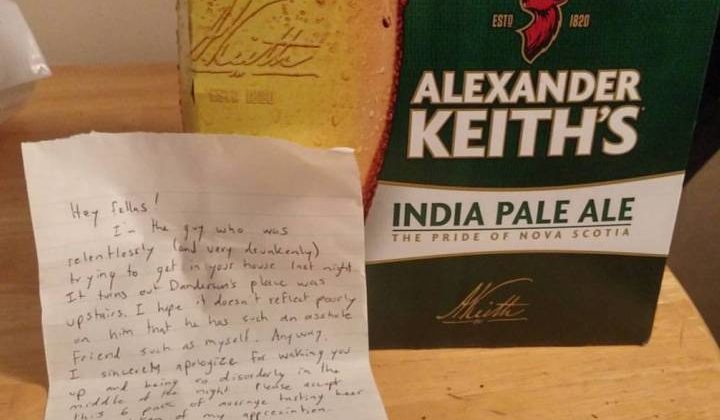 ESTD 1820
Keith
ALEXANDER
KEITH'S
INDIA PALE ALE
THE PRIDE OF NOVA SCOTIA
AKeith
Hey fellas!
I'm the guy who was
relentlessly (and very drunkenly)
trying to get in your house last night.
It turns out Danderson's place was
upstairs. I hope it doesn't reflect poorly
on him that he has such an asshole
friend such as myself. Anyway,
I sincerely apologize for waking you
up and being so disorderly in the
middle of the night. Please accept
this 6 pack of average tasting beer
of my appreciation.